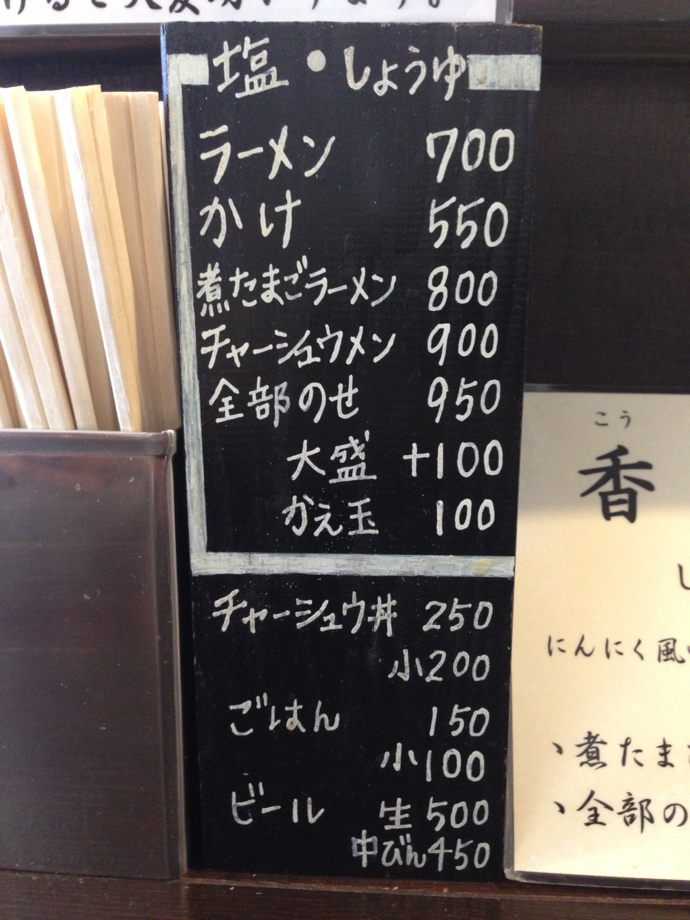 塩・しょうゆ
ラーメン 700
かけ 550
煮たまごラーメン 800
チャーシュウメン 900
全部のせ 950
大盛 +100
かえ玉 100
チャーシュウ丼 250
小200
ごはん 150
小100
ビール 生500
中びん450
こう
香
し
にんにく風
、煮たま
、全部の